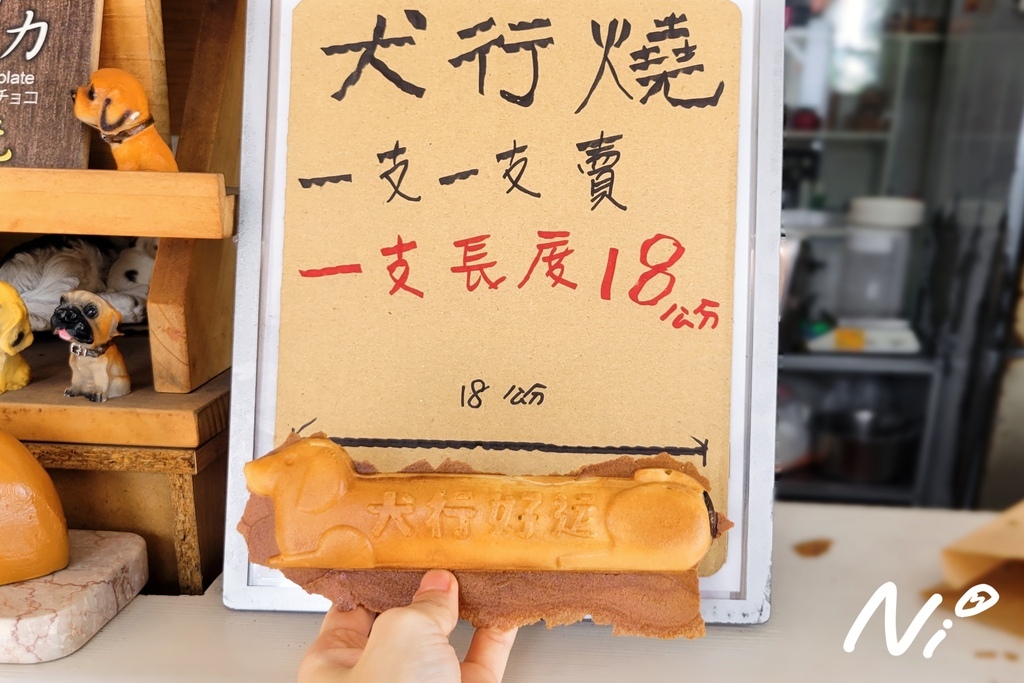 カ
olate
チョコ
犬行燒
一支一支賣
一支長度18公分
18公分
犬行好运
Ni